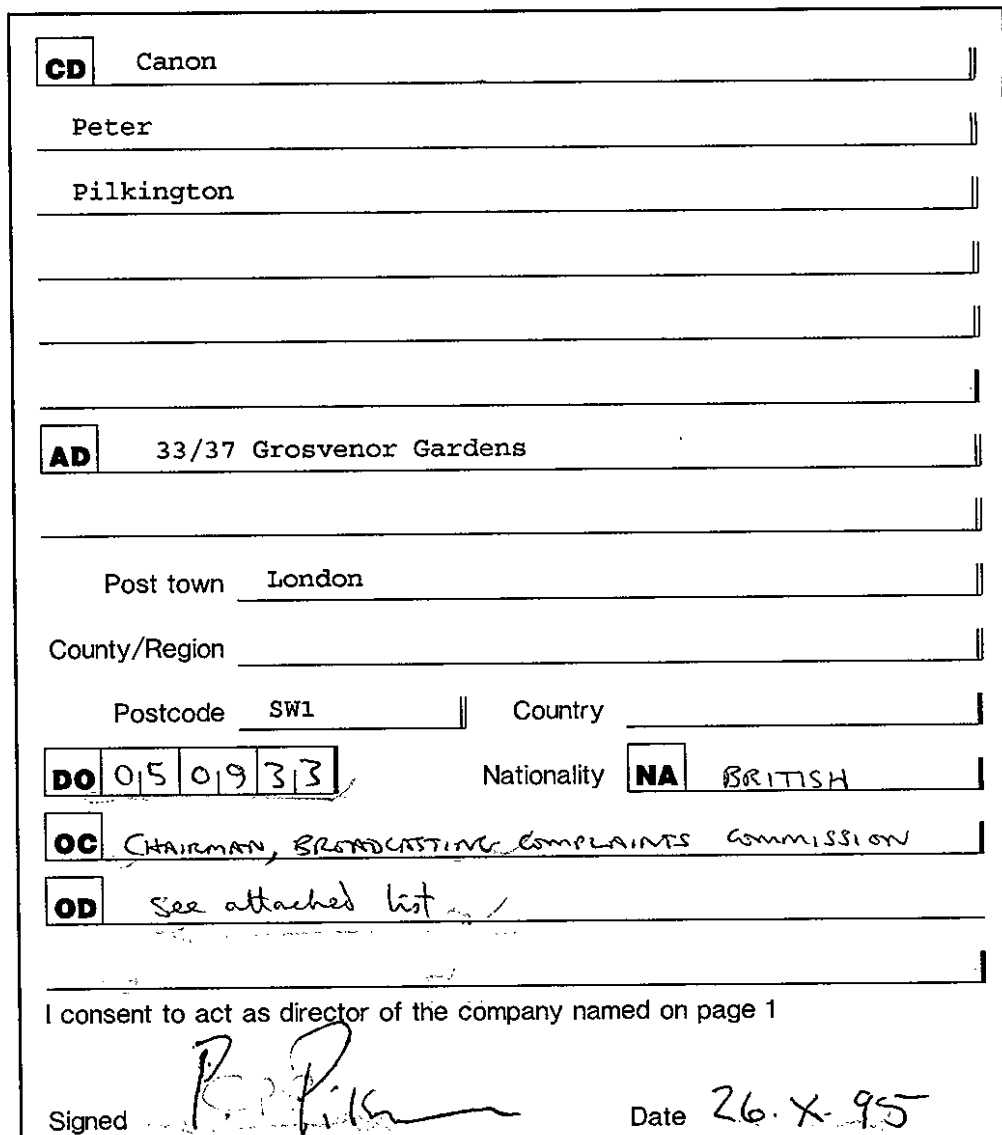 CD Canon
Peter
Pilkington
AD 33/37 Grosvenor Gardens
Post town London
County/Region
Postcode SW1 Country
DO 05 09 33 Nationality NA BRITISH
OC CHAIRMAN, BROADCASTING COMPLAINTS COMMISSION
OD see attached list
I consent to act as director of the company named on page 1
Signed Date 26.X.95